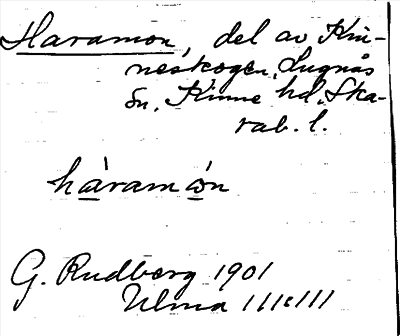 Haramon, del av Kin-
neskogen, Lugnås
sn, Kinne hd, Ska-
rab. l.
hàramón
G. Rudberg 1901
Ulma 111:111